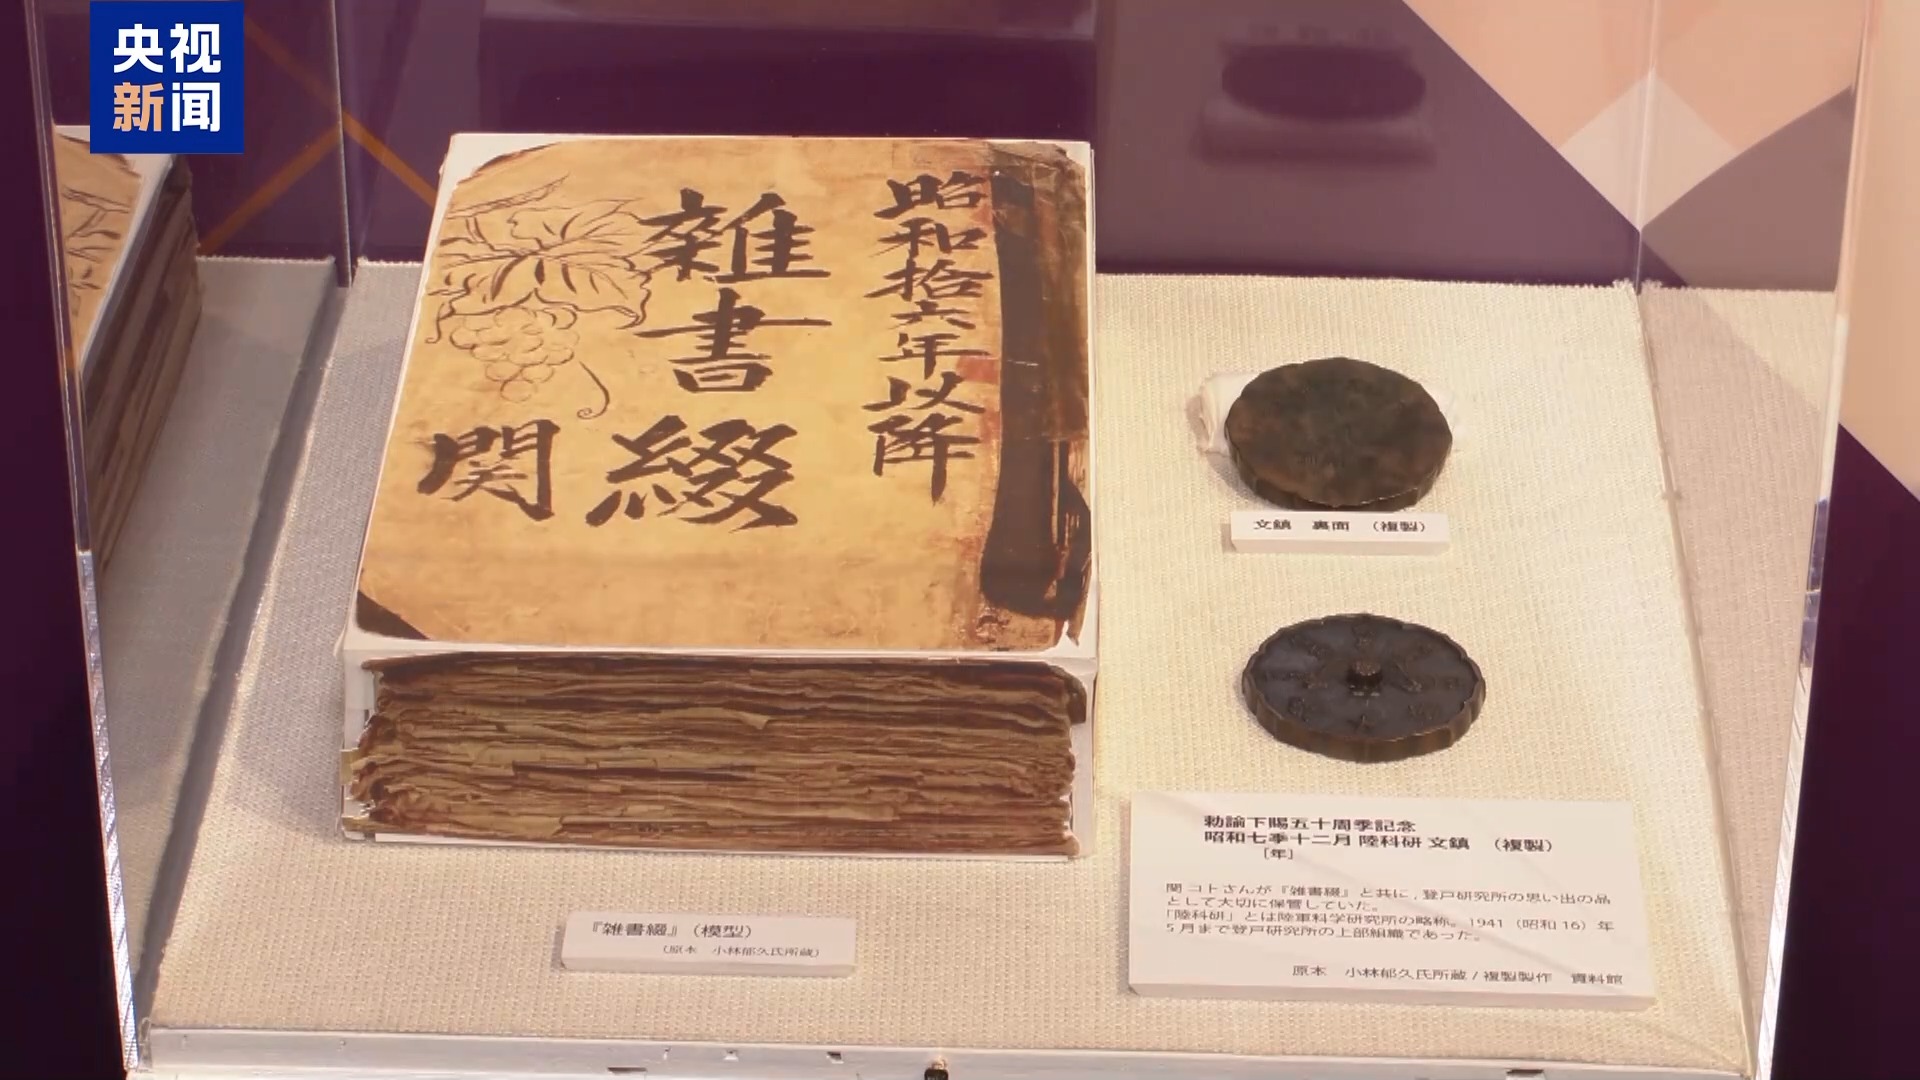 央视
新闻
昭和拾六年以降
雑書綴
関
文鎮　裏面　（複製）
勅諭下賜五十周季記念
昭和七季十二月 陸科研 文鎮　（複製）
［年］
関 コトさんが『雑書綴』と共に，登戸研究所の思い出の品
として大切に保管していた。
「陸科研」とは陸軍科学研究所の略称。1941（昭和16）年
5月まで登戸研究所の上部組織であった。
原本　小林郁久氏所蔵 / 複製製作　資料館
『雑書綴』（模型）
（原本　小林郁久氏所蔵）